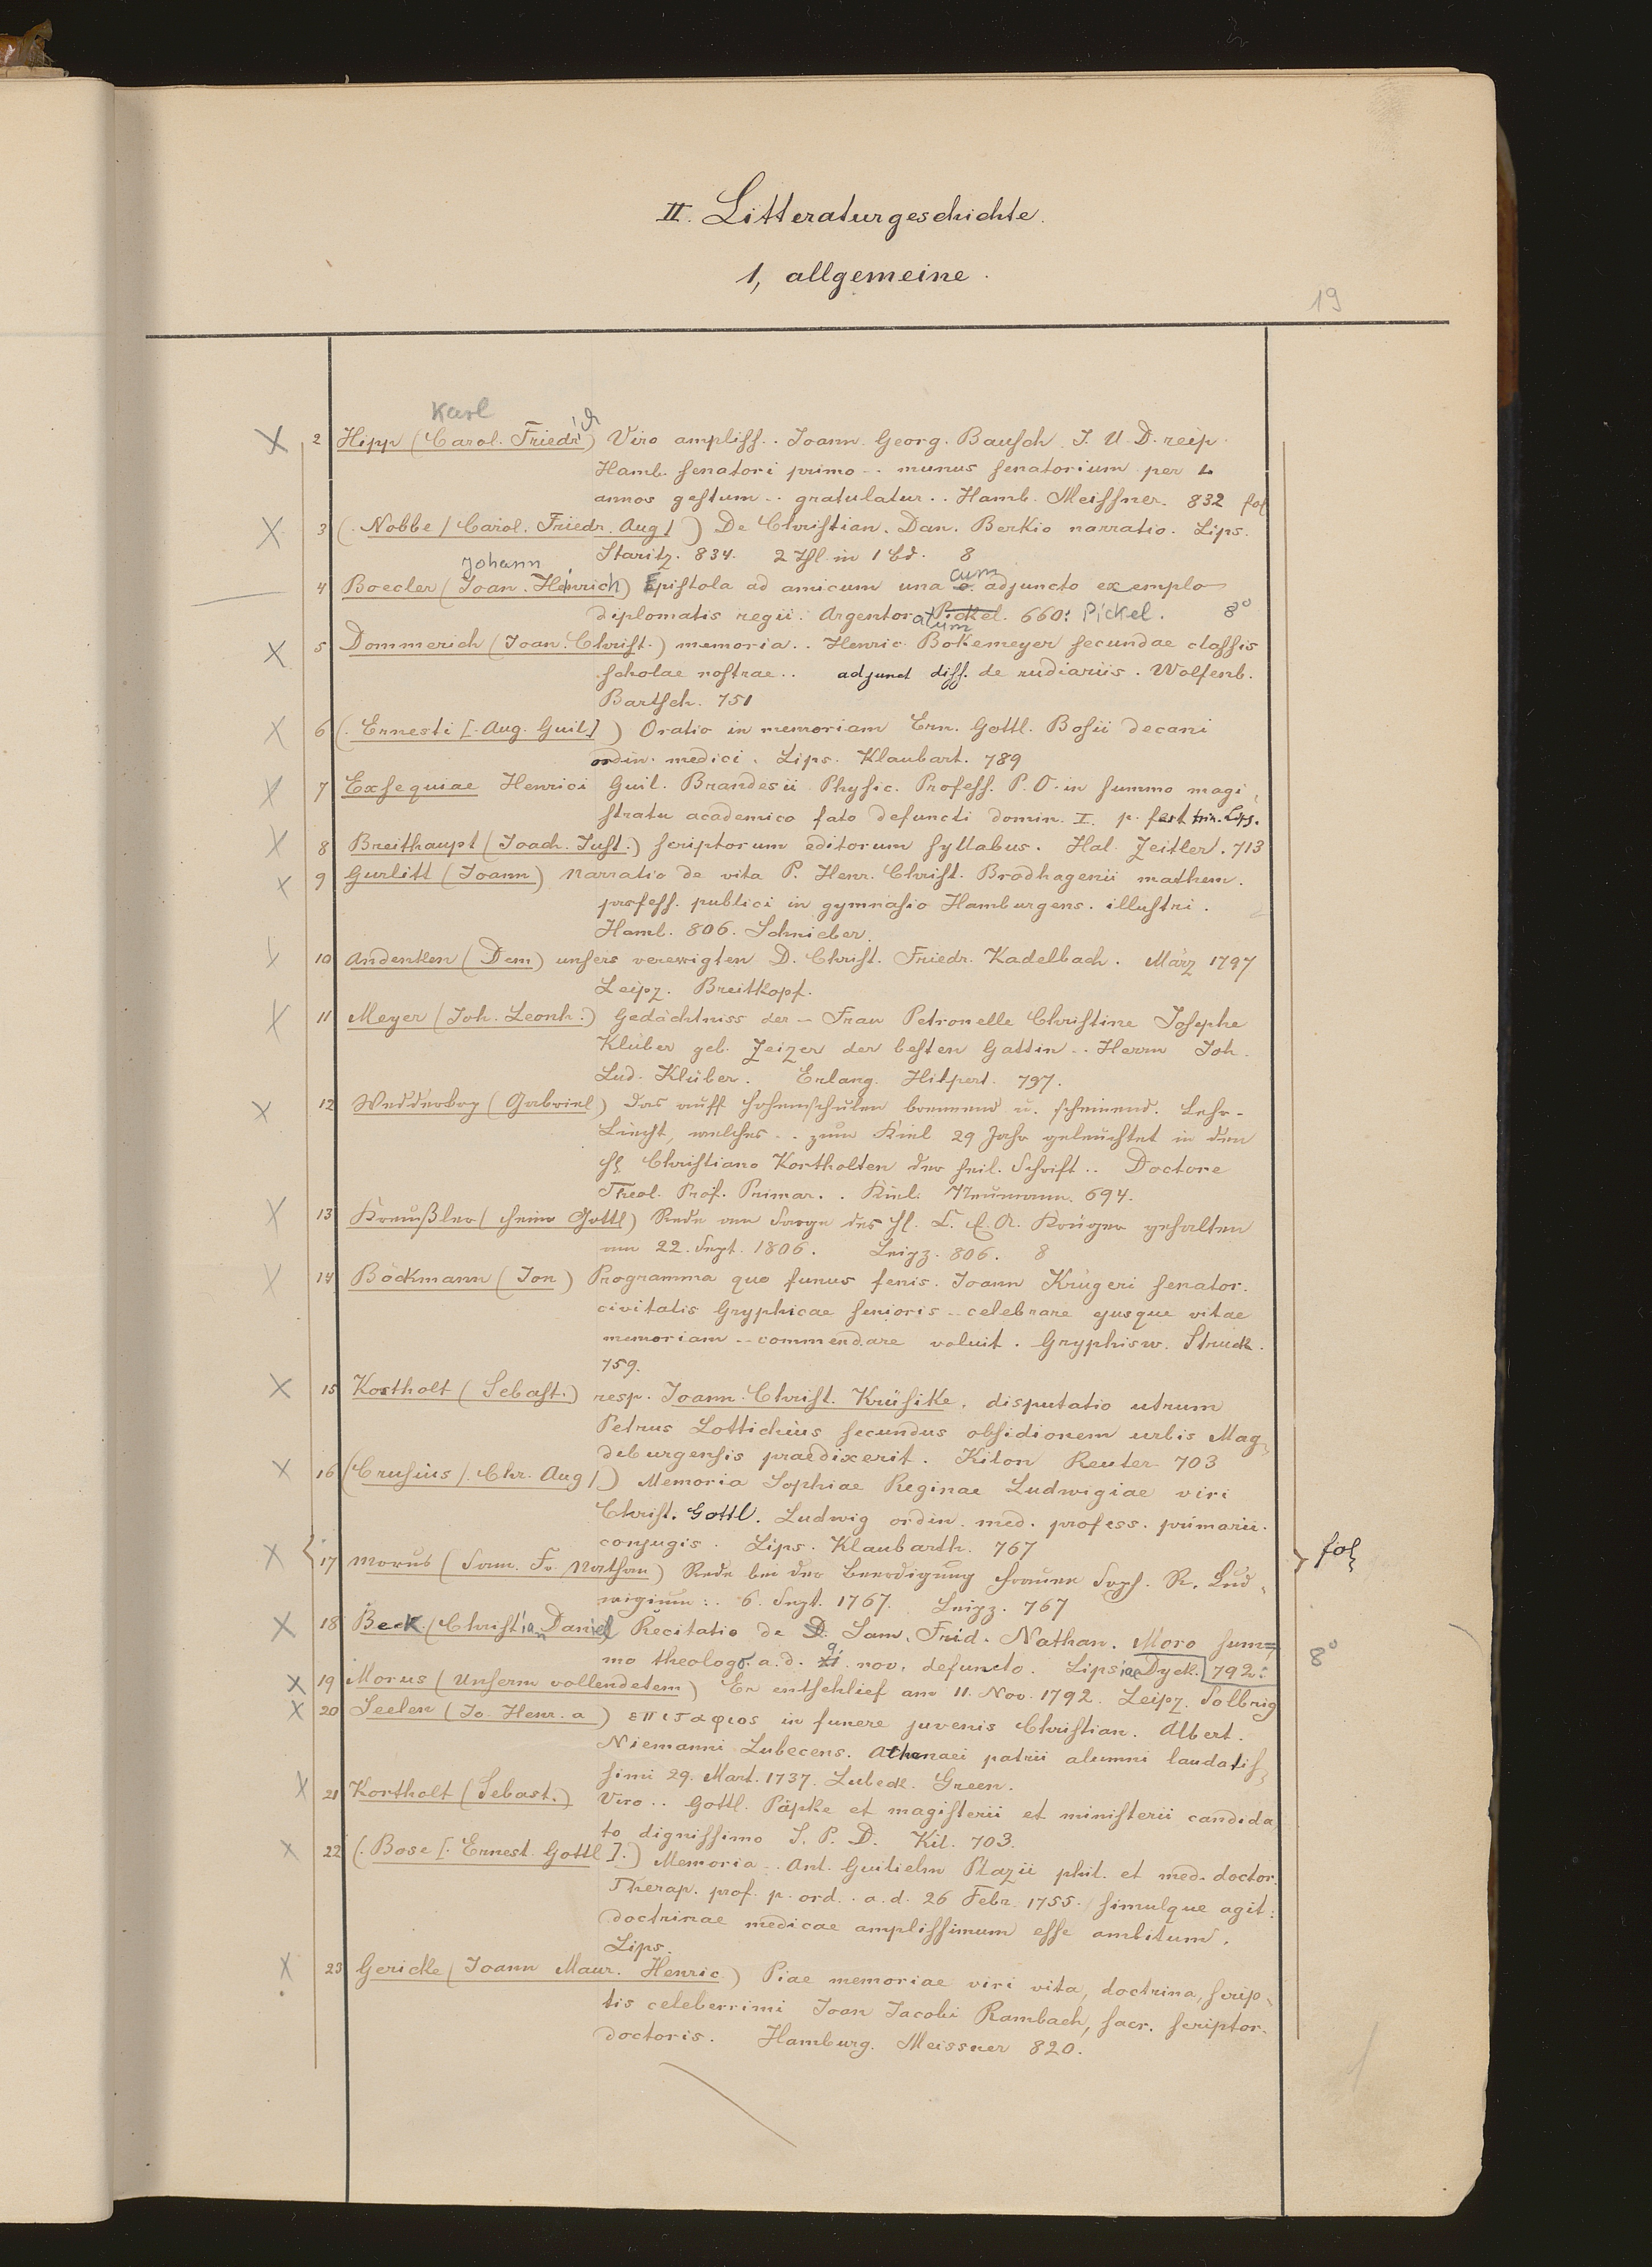 II. Litteraturgeschichte.
1, allgemeine.
19
Karl
2 Hipp (Carol. Friedrich) Viro ampliss.. Joann. Georg. Bausch J. U. D. reip.
Hamb. senatori primo .. munus senatorium per L
annos gestum .. gratulatur.. Hamb. Meissner. 832 fol
3 (. Nobbe / Carol. Friedr. Aug / ) De Christian. Dan. Berkio narratio. Lips.
Staritz. 834. 2 Thl. in 1 bd. 8
Johann cum
4 Boecler (Joan. Heinrich) Epistola ad amicum una c. adjuncto exemplo
diplomatis regii. Argentoratum Pickel. 660: Pickel. 8°
5 Dommerich (Joan. Christ.) memoria.. Henric. Bokemeyer secundae classis
scholae nostrae.. adjunct diss. de rudiariis. Wolfenb.
Bartsch. 751
6 (. Ernesti [. Aug. Guil] ) Oratio in memoriam Ern. Gottl. Bosii decani
ordin. medici. Lips. Klaubart. 789
7 Exsequiae Henrici Guil. Brandesii Physic. Profess. P. O. in summo magi,
stratu academico fato defuncti domin. I. p. fest trin. Lips.
8 Breithaupt (Joach. Just.) scriptorum editorum syllabus. Hal. Zeitler. 713
9 Gurlitt (Joann) Narratio de vita P. Henr. Christ. Brodhagenii mathem.
profess. publici in gymnasio Hamburgens. illustri.
Hamb. 806. Schnieber.
10 Andenken (Dem) unsers verewigten D. Christ. Friedr. Kadelbach. März 1797
Leipz. Breitkopf.
11 Meyer (Joh. Leonh.) Gedächtniss der – Frau Petronelle Christine Josephe
Klüber geb. Zeizer der besten Gattin .. Herrn Joh.
Lud. Klüber. Erlang. Hilpert. 797.
12 Wedderkop (Gabriel) Das auff hohenschulen brennend u. scheinend. Lehr-
Liecht, welches .. zum Kiel 29 Jahr geleuchtet in den
H. Christiano Kortholten der heil. Schrift.. Doctore
Theol. Prof. Primar.. Kiel. Neumann. 694.
13 Kreußler (Heinr Gottl) Rede am Sarge des H. C. E. A. Krüger gehalten
am 22. Sept. 1806. Leipz. 806. 8
14 Böckmann (Jon) Programma quo funus senis. Joann Krügeri senator.
civitatis Gryphicae senioris .. celebrare ejusque vitae
memoriam .. commendare voluit. Gryphisw. Struck.
759.
15 Kortholt (Sebast.) resp. Joann. Christ. Krüsike, disputatio utrum
Petrus Lottichius secundus obsidionem urbis Mag,
deburgensis praedixerit. Kilon Reuter 703
16 (Crusius /. Chr. Aug /) Memoria Sophiae Reginae Ludwigiae viri
Christ. Gottl. Ludwig ordin. med. profess. primarii.
conjugis. Lips. Klaubarth. 767
fol
17 Morus (Sam. Fr. Nathan) Rede bei der Beerdigung Frauen Soph. R. Lud,
wigium:. 6. Sept. 1767. Leipz. 767
18 Beck (Christian Daniel Recitatio de D. Sam. Frid. Nathan. Moro sum=
mo theologo. a. d. XI nov. defuncto. Lipsiae Dyck. 792:
8°
19 Morus (Unserm vollendetem) Er entschlief am 11. Nov. 1792. Leipz. Solbrig
20 Seelen (Jo. Henr. a) επιταφιος in funere juvenis Christian. Albert.
Niemanni Lubecens. Athenaei patrii alumni laudatis,
simi 29. Mart. 1737. Lubeck. Green.
21 Kortholt (Sebast.) Viro.. Gottl. Päpke et magisterii et ministerii candida,
to dignissimo S. P. D. Kil. 703.
22 (. Bose [. Ernest. Gottl ].) Memoria.. Ant. Guilielm Plazii phil. et med. doctor.
Therap. prof. p. ord.. a. d. 26 Febr. 1755. simulque agit:
doctrinae medicae amplissimum esse ambitum.
Lips.
23 Gericke (Joann Maur. Henric) Piae memoriae viri vita, doctrina, scrip,
tis celeberrimi Joan Jacobi Rambach, sacr. scriptor.
doctoris. Hamburg. Meissner 820.